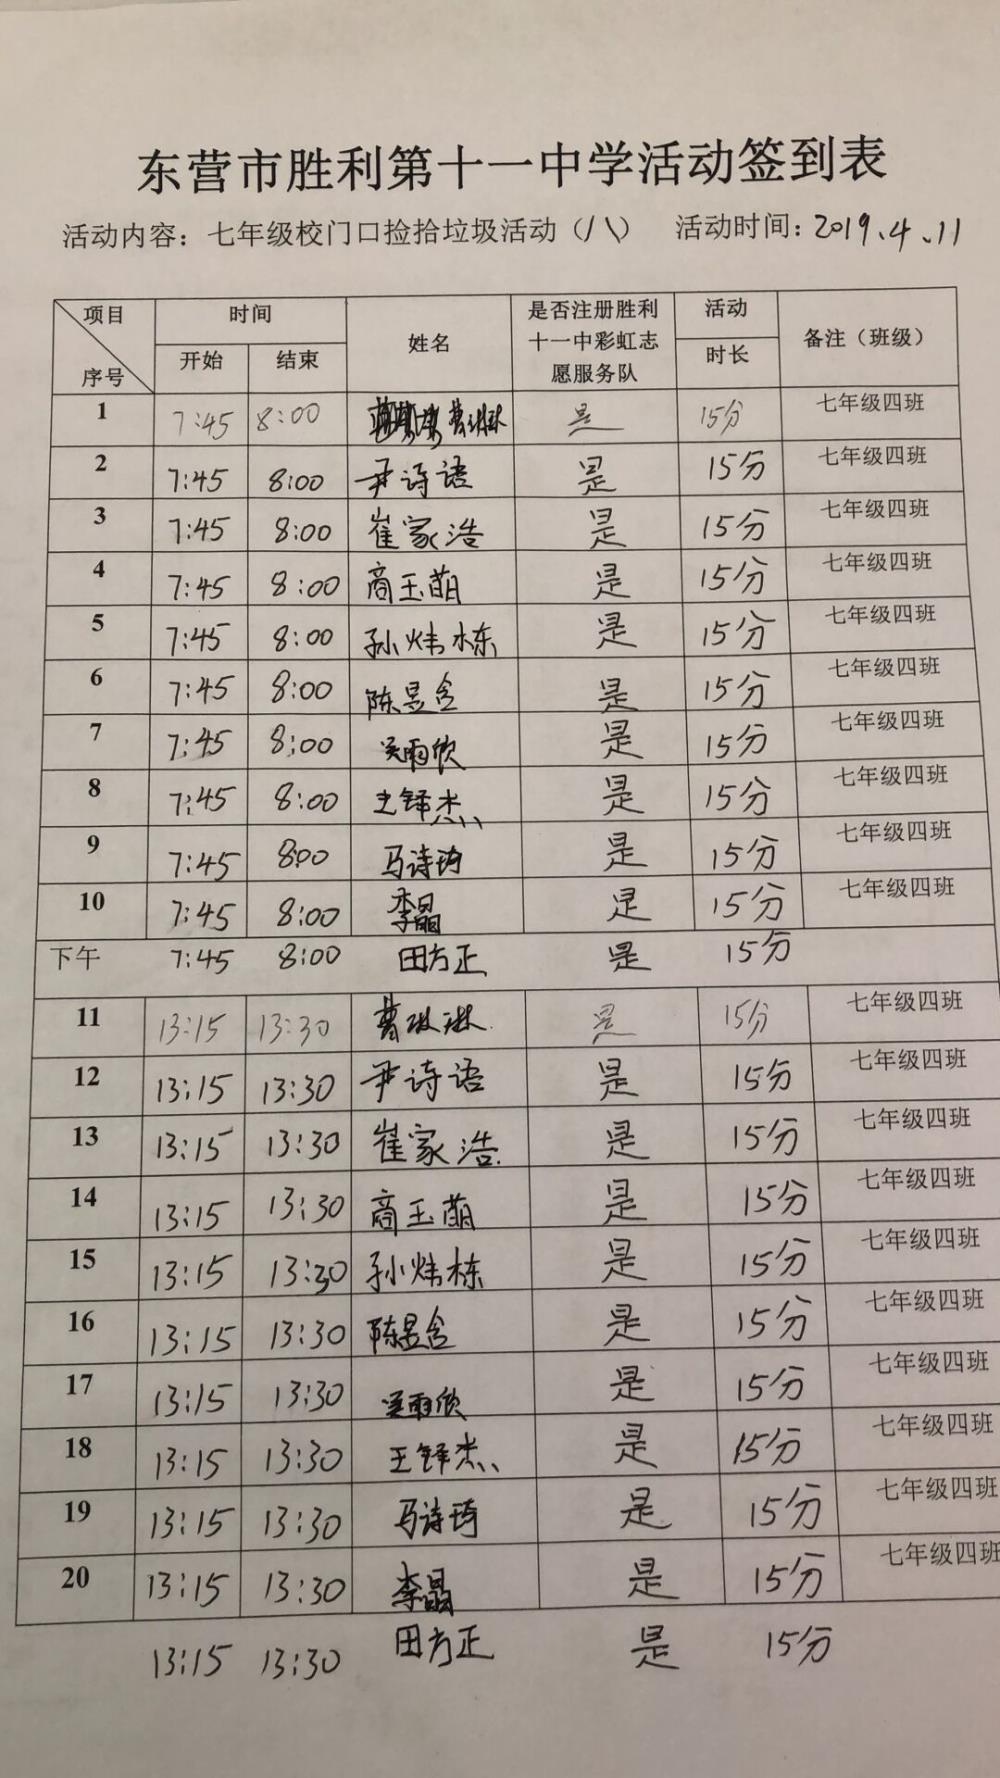 东营市胜利第十一中学活动签到表
活动内容：七年级校门口捡拾垃圾活动（八） 活动时间：2019.4.11
项目 序号 时间 开始 结束 姓名 是否注册胜利十一中彩虹志愿服务队 活动时长 备注（班级）
1 7:45 8:00 曹琳琳 是 15分 七年级四班
2 7:45 8:00 尹诗语 是 15分 七年级四班
3 7:45 8:00 崔家浩 是 15分 七年级四班
4 7:45 8:00 商玉萌 是 15分 七年级四班
5 7:45 8:00 孙炜栋 是 15分 七年级四班
6 7:45 8:00 陈昱含 是 15分 七年级四班
7 7:45 8:00 吴雨欣 是 15分 七年级四班
8 7:45 8:00 王铎杰 是 15分 七年级四班
9 7:45 8:00 马诗琦 是 15分 七年级四班
10 7:45 8:00 李晶 是 15分 七年级四班
下午 7:45 8:00 田方正 是 15分
11 13:15 13:30 曹琳琳 是 15分 七年级四班
12 13:15 13:30 尹诗语 是 15分 七年级四班
13 13:15 13:30 崔家浩 是 15分 七年级四班
14 13:15 13:30 商玉萌 是 15分 七年级四班
15 13:15 13:30 孙炜栋 是 15分 七年级四班
16 13:15 13:30 陈昱含 是 15分 七年级四班
17 13:15 13:30 吴雨欣 是 15分 七年级四班
18 13:15 13:30 王铎杰 是 15分 七年级四班
19 13:15 13:30 马诗琦 是 15分 七年级四班
20 13:15 13:30 李晶 是 15分 七年级四班
13:15 13:30 田方正 是 15分